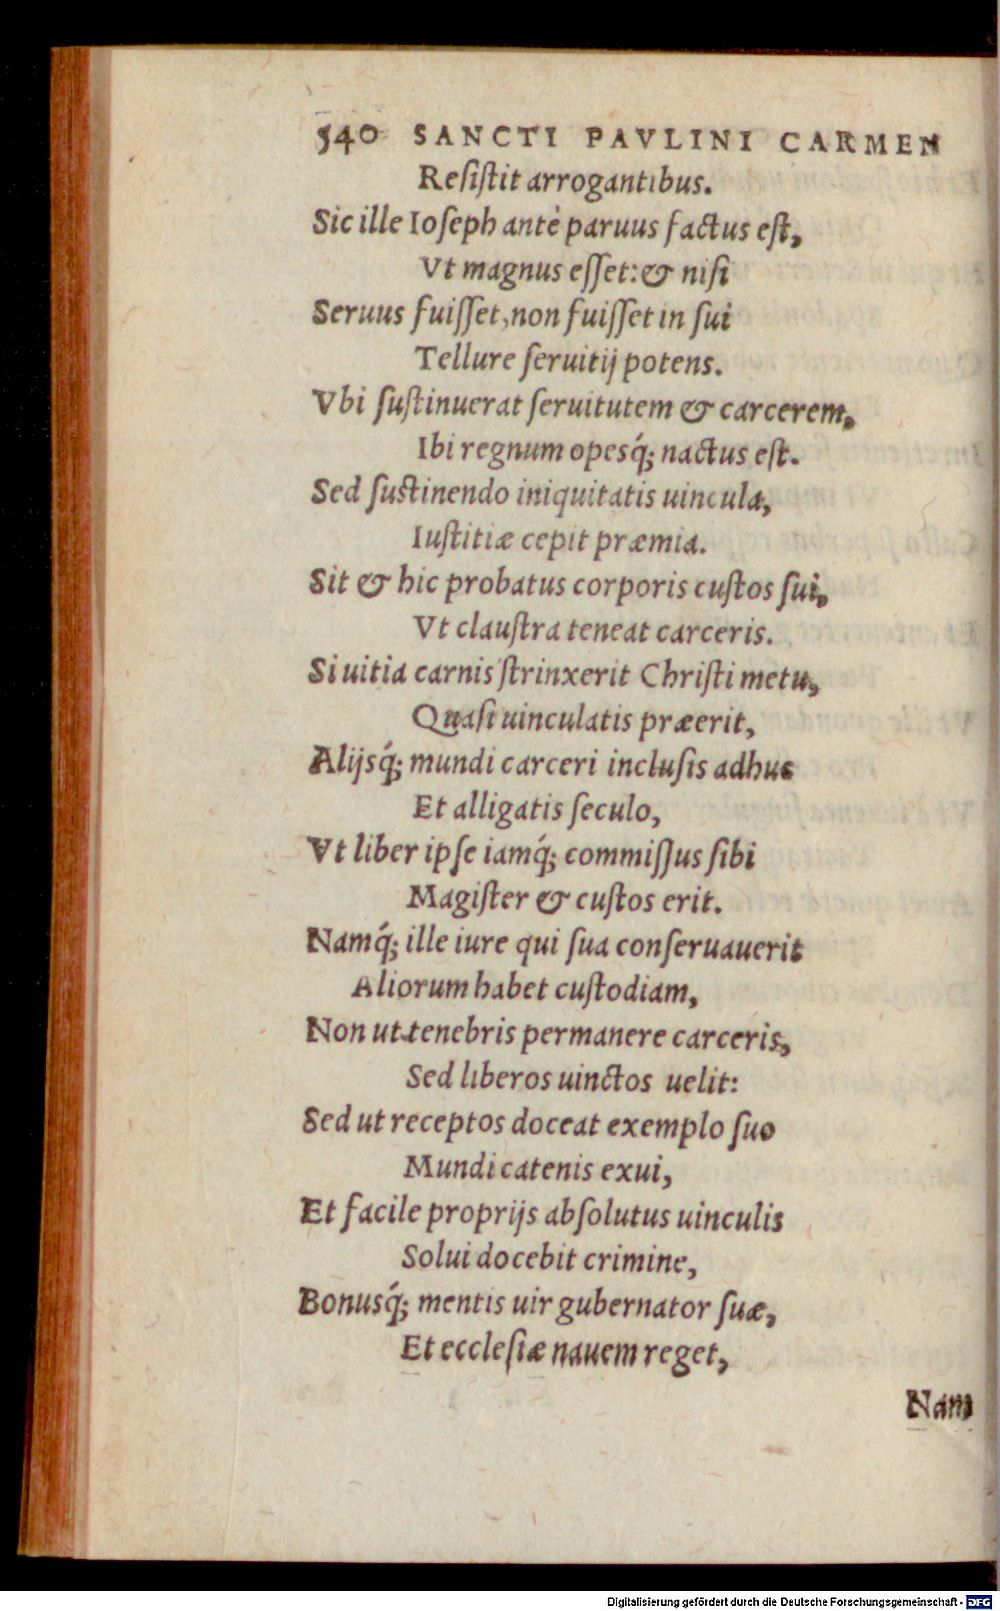 540 SANCTI PAVLINI CARMEN
Reſiſtit arrogantibus.
Sic ille Ioſeph antè paruus factus eſt,
Vt magnus eſſet: & niſi
Seruus fuiſſet, non fuiſſet in ſui
Tellure ſeruitij potens.
Vbi ſuſtinuerat ſeruitutem & carcerem,
Ibi regnum opesq́; nactus eſt.
Sed ſuſtinendo iniquitatis uincula,
Iuſtitiæ cepit præmia.
Sit & hic probatus corporis cuſtos ſui,
Vt clauſtra teneat carceris.
Si uitia carnis ſtrinxerit Chriſti metu,
Quaſi uinculatis præerit,
Alijsq́; mundi carceri incluſis adhuc
Et alligatis ſeculo,
Vt liber ipſe iamq́; commiſſus ſibi
Magiſter & cuſtos erit.
Namq́; ille iure qui ſua conſeruauerit
Aliorum habet cuſtodiam,
Non ut tenebris permanere carceris,
Sed liberos uinctos uelit:
Sed ut receptos doceat exemplo ſuo
Mundi catenis exui,
Et facile proprijs abſolutus uinculis
Solui docebit crimine,
Bonusq́; mentis uir gubernator ſuæ,
Et eccleſiæ nauem reget,
Nam
Digitalisierung gefördert durch die Deutsche Forschungsgemeinschaft - DFG